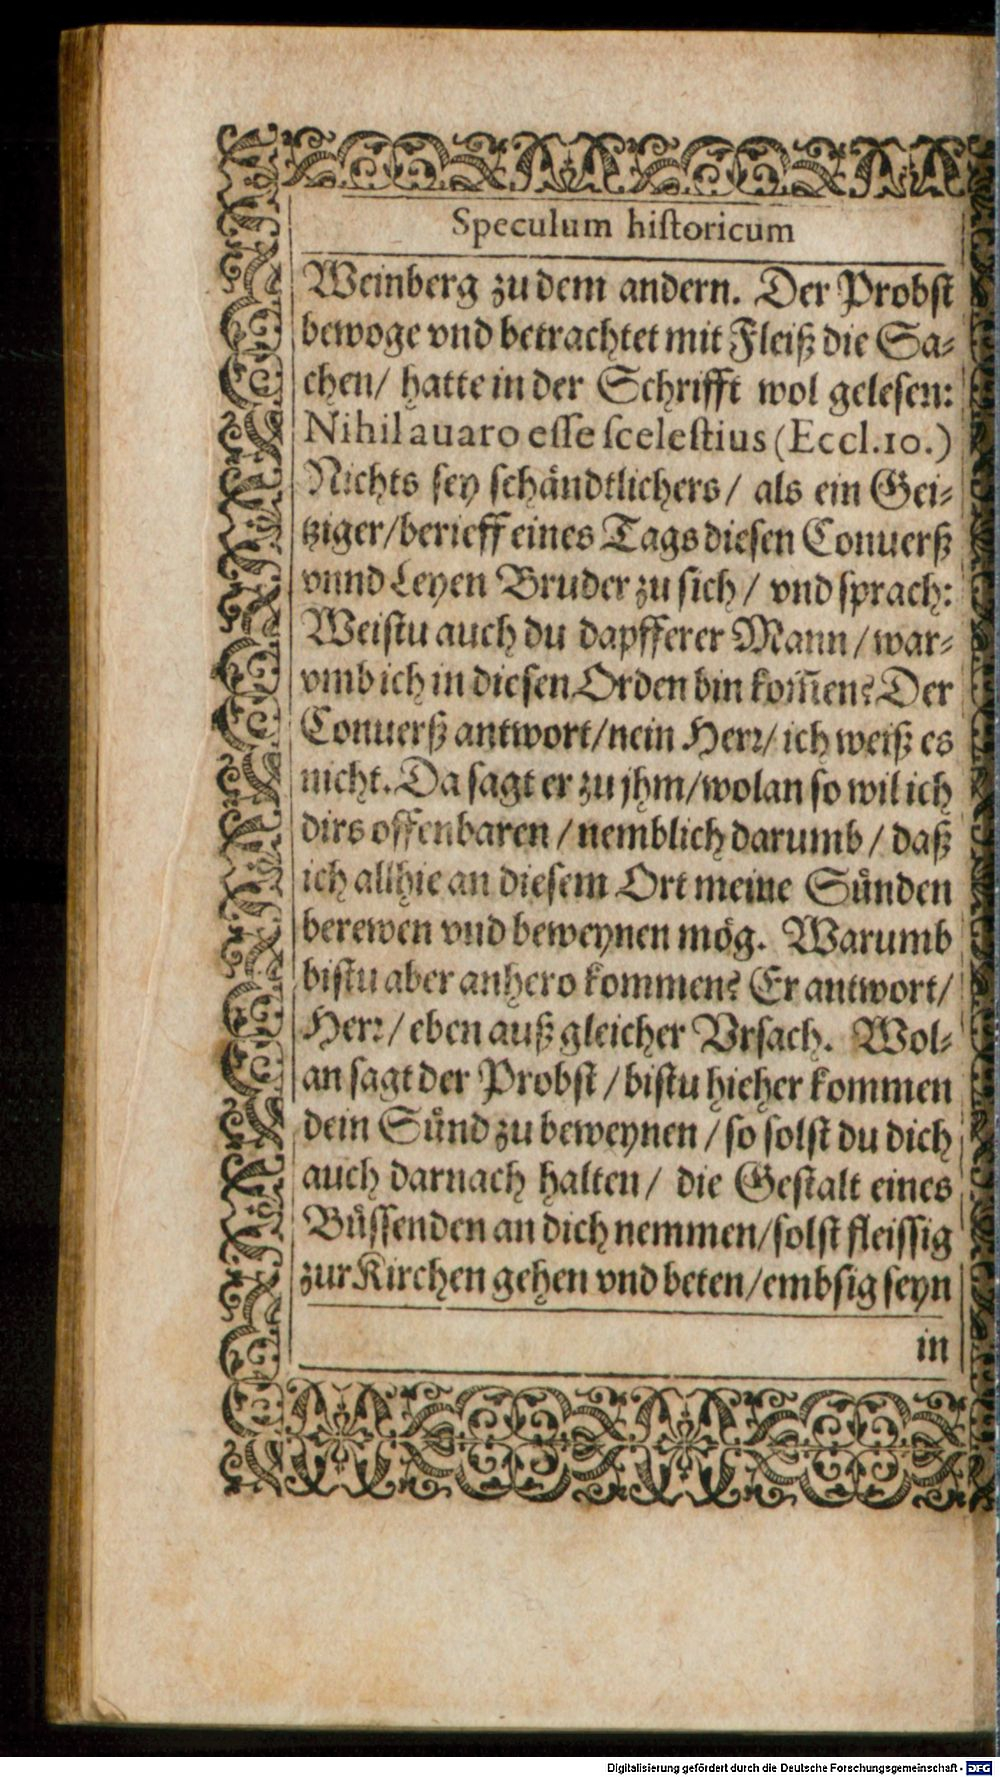 Speculum hiſtoricum
Weinberg zu dem andern. Der Probſt
bewoge vnd betrachtet mit Fleiß die Sa⸗
chen/ hatte in der Schrifft wol geleſen:
Nihil auaro eſſe ſceleſtius (Eccl.10.)
Nichts ſey ſchändtlichers/ als ein Gei⸗
tziger/berieff eines Tags dieſen Conuerß
vnnd Leyen Bruder zu ſich/ vnd ſprach:
Weiſtu auch du dapfferer Mann/war⸗
vmb ich in dieſen Orden bin kom̃en? Der
Conuerß antwort/nein Herꝛ/ich weiß es
nicht. Da ſagt er zu jhm/wolan ſo wil ich
dirs offenbaren/nemblich darumb/daß
ich allhie an dieſem Ort meine Sünden
berewen vnd beweynen mög. Warumb
biſtu aber anhero kommen? Er antwort/
Herꝛ/eben auß gleicher Vrſach. Wol⸗
an ſagt der Probſt/biſtu hieher kommen
dein Sünd zu beweynen/ſo ſolſt du dich
auch darnach halten/ die Geſtalt eines
Büſſenden an dich nemmen/ſolſt fleiſſig
zur Kirchen gehen vnd beten/embſig ſeyn
in
Digitalisierung gefördert durch die Deutsche Forschungsgemeinschaft - DFG